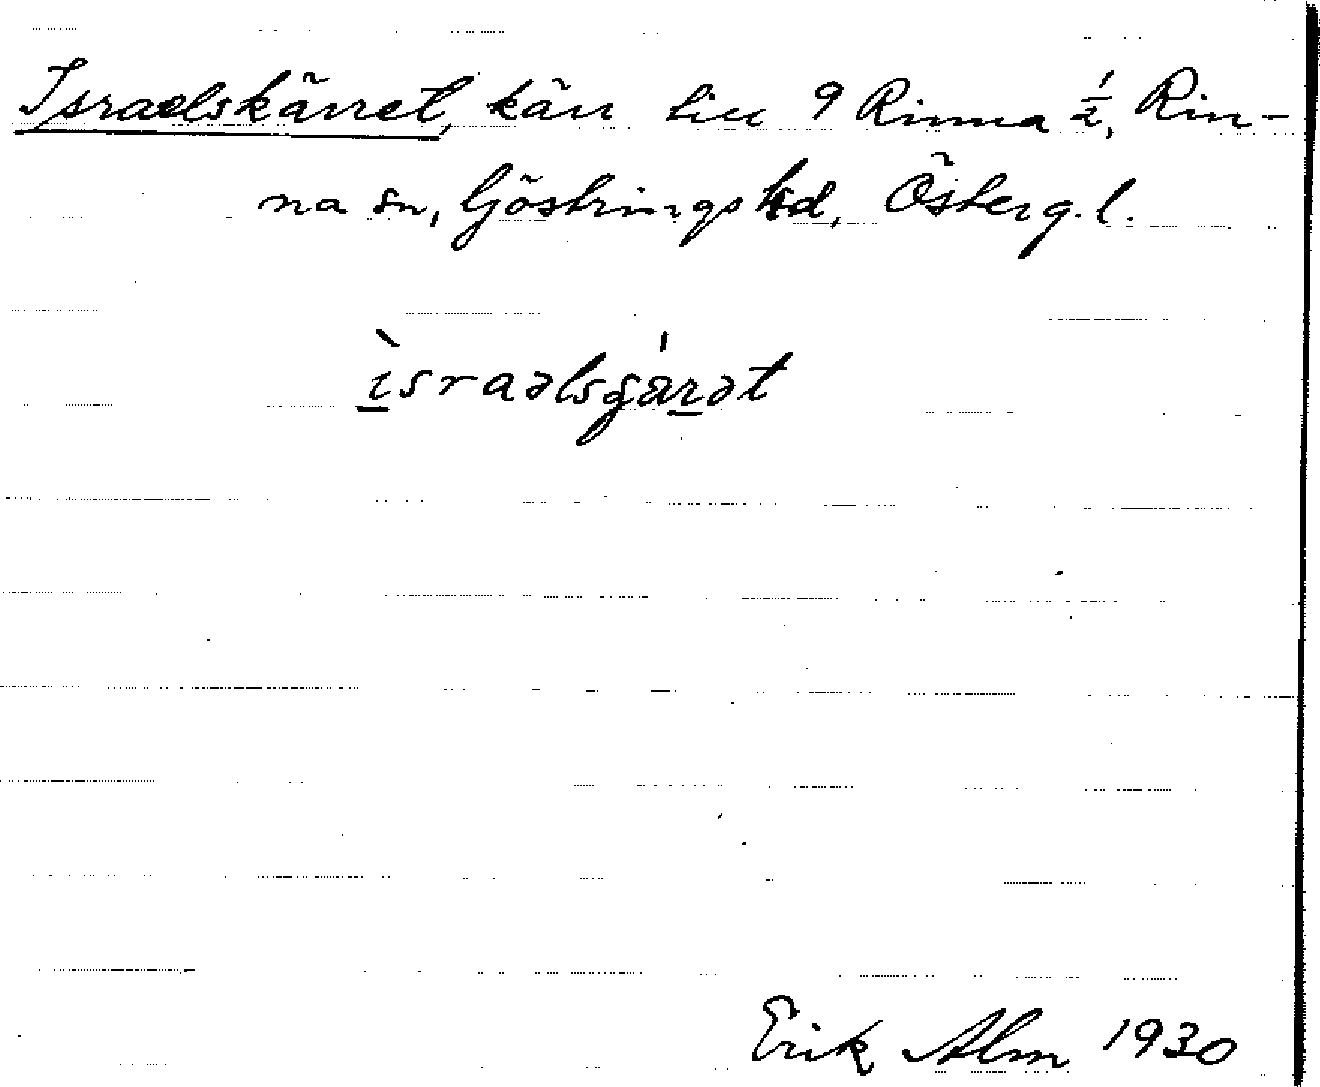 Israelskärret, kärr till 9 Rinna 1/2, Rin-
na sn, Göstrings hd, Österg. l.
ìsraəlsɡárət
Erik Alm 1930